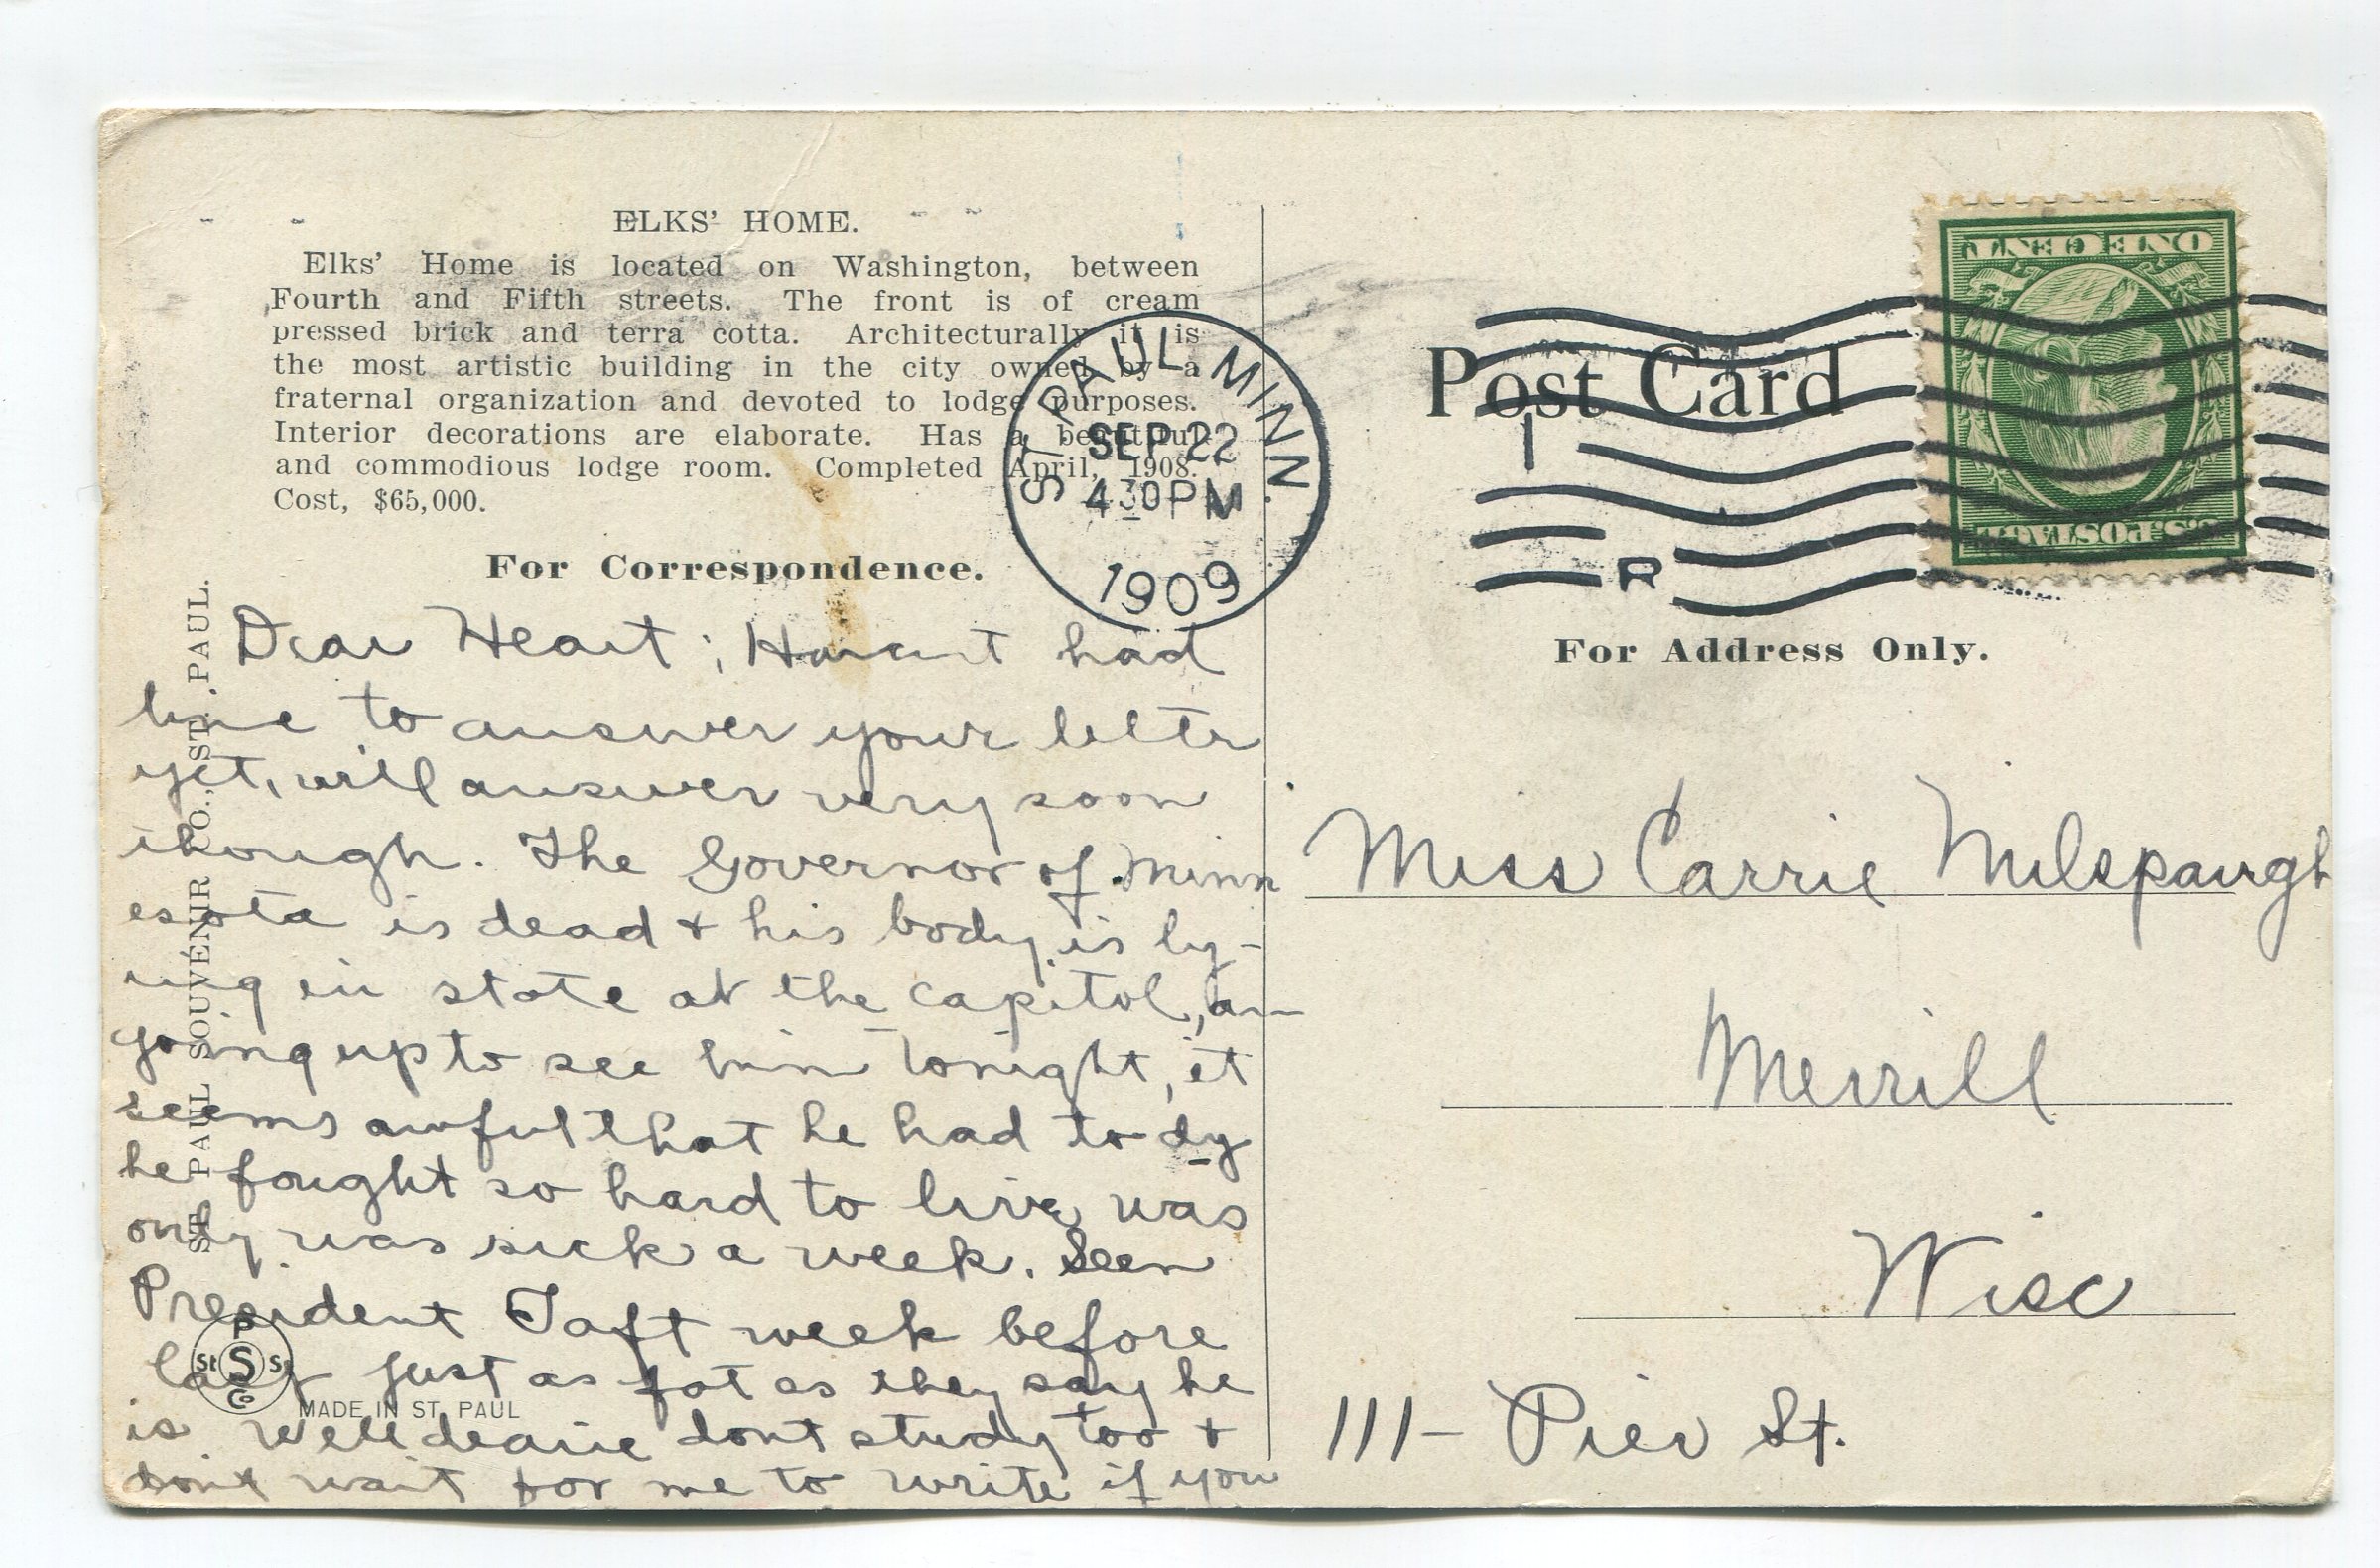 ELKS' HOME.
Elks' Home is located on Washington, between
Fourth and Fifth streets. The front is of cream
pressed brick and terra cotta. Architecturally it is
the most artistic building in the city owned by a
fraternal organization and devoted to lodge purposes.
Interior decorations are elaborate. Has a beautiful
and commodious lodge room. Completed April, 1908.
Cost, $65,000.
For Correspondence.
Dear Heart; Havent had
time to answer your letter
yet, will answer very soon
though. The Governor of Minn
esota is dead & his body is ly-
ing in state at the capitol, am
going up to see him tonight, it
seems awful that he had to dy
he fought so hard to live, was
only was sick a week. Seen
President Taft week before
last just as fat as they say he
is. Well dearie dont study too &
dont wait for me to write if you
ST. PAUL SOUVENIR CO., ST. PAUL.
P
St S S
Co
MADE IN ST. PAUL
ST. PAUL, MINN.
SEP 22
4 30 PM
1909
Post Card
1
R
ONE CENT
U.S. POSTAGE
For Address Only.
Miss Carrie Milspaugh
Merrill
Wisc
111- Pier St.